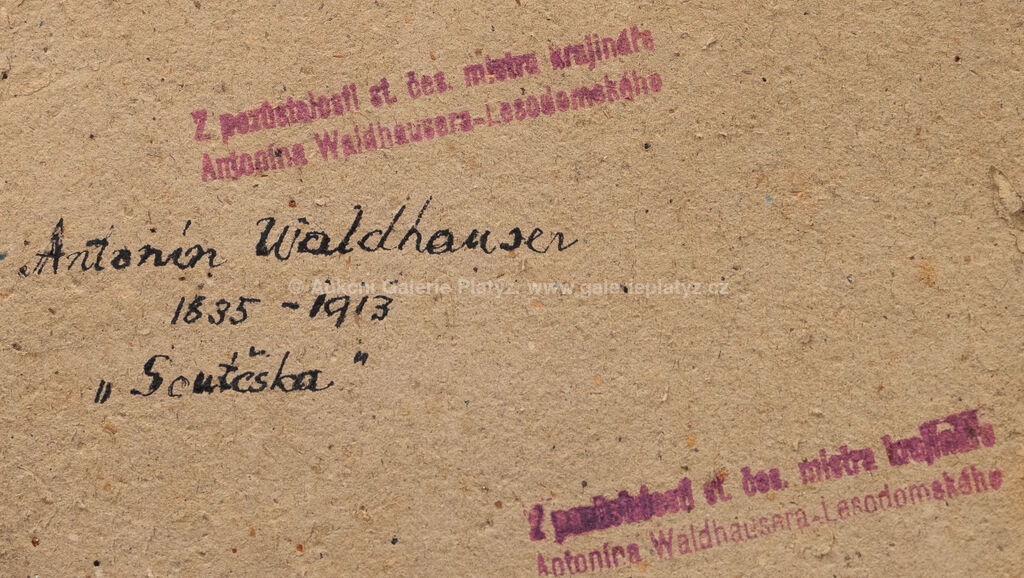 Z pozůstalosti st. čes. mistra krajináře
Antonína Waldhausera-Lesodomského
Antonín Waldhauser
© Aukční Galerie Platýz, www.galerieplatyz.cz
1835 - 1913
„Soutěska"
Z pozůstalosti st. čes. mistra krajináře
Antonína Waldhausera-Lesodomského